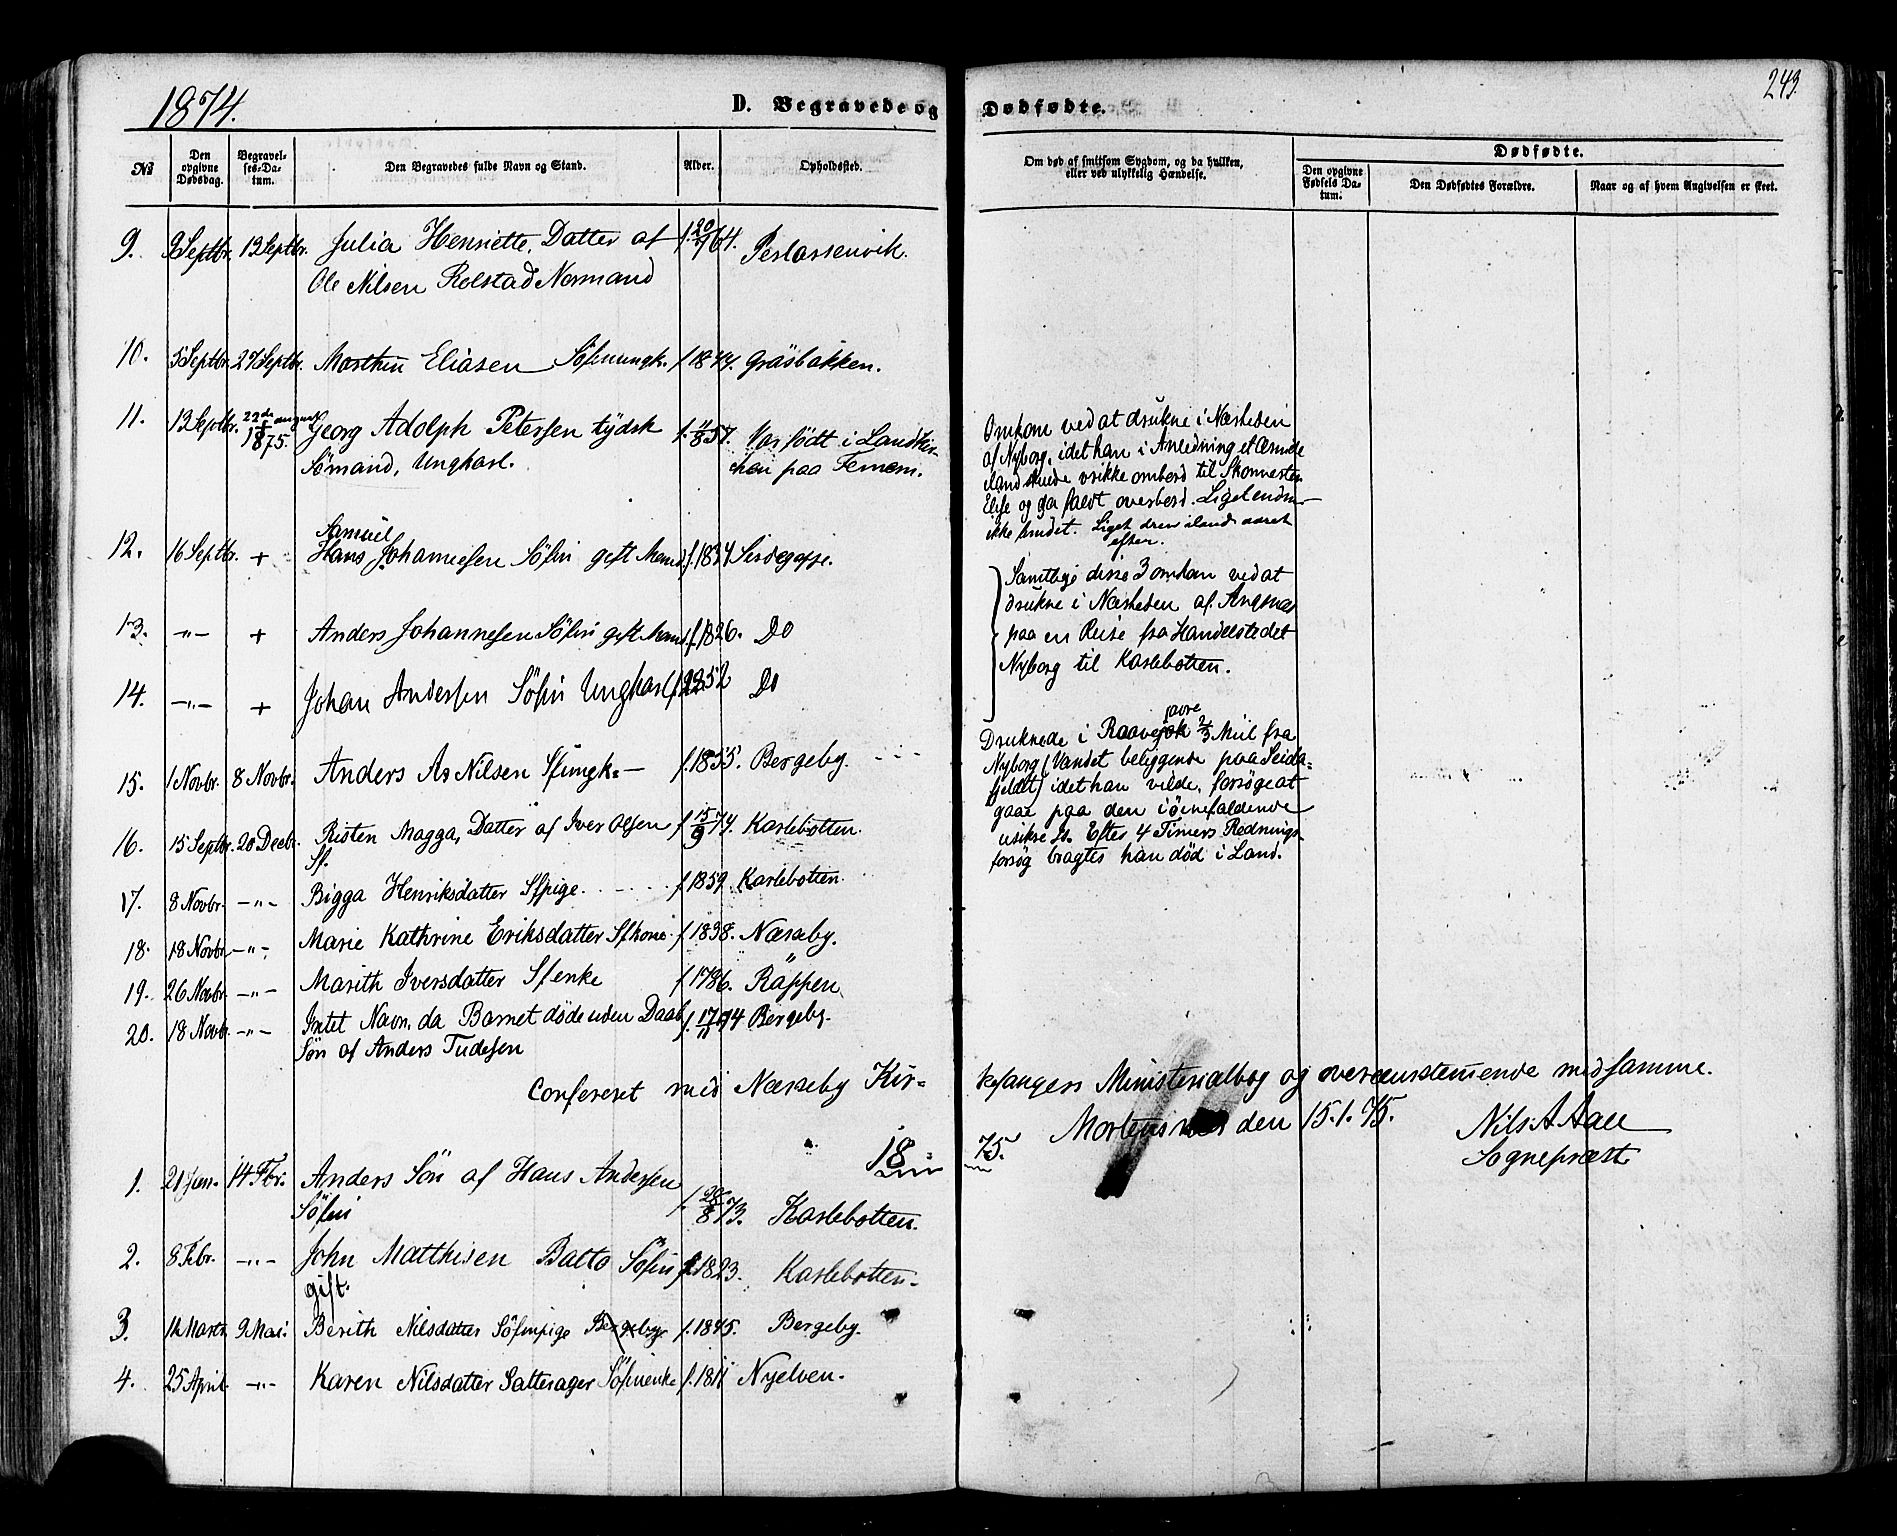 1874.
D. Begravede og Dødfødte.
243.
No
Den opgivne Dødsdag.
Begravelses-Datum.
Den Begravedes fulde Navn og Stand.
Alder.
Opholdssted.
Om død af smitsom Sygdom, og da hvilken, eller ved ulykkelig Hændelse.
Dødfødte.
Den opgivne Fødsels Datum.
Den Dødfødtes Forældre.
Naar og af hvem Angivelsen er skeet.
9. Septbr. 13 Septbr. Julia Henriette, Datter af f. 20/ 64. Perlarsenvik.
Ole Nilsen Rolstad Normand
10. 5 Septbr. 27 Septbr. Marthin Eliasen Søfinungk. f. 1844. Gräsbakken.
11. 13 Septbr. 22de august 1875. Georg Adolph Petersen tydsk f. 1857. Var født i Landkir-
Sømand, Ungkarl. chen paa Femern.
Omkom ved at drukne i Nærheden
af Nyborg, idet han i Anledning et Ærinde
iland skulde vrikke ombord til Skonnerten
Elise og da faldt overbord. Liget endnu
ikke fundet. Liget drev iland aaret
efter.
12. 16 Septbr. + Samuel
Hans Johannesen Søfin gift Mand f. 1834 Sirdagoppe.
13. -"- + Anders Johannesen Søfin gift Mand f. 1826. Do
14. -"- + Johan Andersen Søfin Ungkarl f. 1852 Do
Samtlige disse 3 omkom ved at
drukne i Nærheden af Angsnæs
paa en Reise fra Handelstedet
Nyborg til Karlebotten.
15. 1 Novbr. 8 Novbr. Anders As Nilsen Sfungk. – f. 1855. Bergeby.
Druknede i Raavejok javre 2/3 Miil fra
Nyborg (Vandet beliggende paa Seida-
fjeldet) idet han vilde forsøge at
gaae paa den iøinefaldende
usikre Is. Efter 4 Timers Rednings-
forsøg bragtes han død i Land.
16. 15 Septbr. 20 Decbr. Risten Magga, Datter af Iver Olsen f. 15/9 74. Karlebotten.
Sf.
17. 8 Novbr. -"- Bigga Henriksdatter Sfpige. f. 1859. Karlebotten.
18. 18 Novbr. -"- Marie Kathrine Eriksdatter Sfkone. f. 1838. Næsseby.
19. 26 Novbr. -"- Marith Iversdatter Sfenke f. 1786. Räppen
20. 18 Novbr. -"- Intet Navn, da Barnet døde uden Daab f. 17/11 74 Bergeby.
Søn af Anders Tudesen
Confereret med Næsseby Kir- kesangers Ministerialbog og overensstemmende med samme.
Mortensnæs den 15.1.75. Nils A Aall
Sogneprest
18 75.
1. 21 Jan. 14 Fbr. Anders Søn af Hans Andersen
Søfin f. 20/8 73. Karlebotten.
2. 8 Febr. -"- John Matthisen Balto Søfin f. 1823. Karlebotten.
gift.
3. 14 Marts 9 Mai. Berith Nilsdatter Søfinpige Bergeby f. 1845. Bergeby.
4. 25 April -"- Karen Nilsdatter Satterager Søfinenke f. 1811 Nyelven.